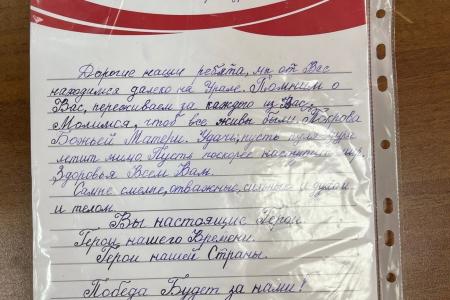 Дорогие наши ребята, мы от Вас
находимся далеко на Урале. Помним о
Вас, переживаем за каждого из Вас.
Молимся, чтоб все живы были. Покрова
Божьей Матери. Удачи, пусть пуля врага
летит мимо. Пусть поскорее наступит мир.
Здоровья Всем Вам.
Самые смелые, отважные, сильные и духом
и телом.
Вы настоящие Герои
Герои нашего Времени.
Герои нашей Страны.
Победа Будет за нами!